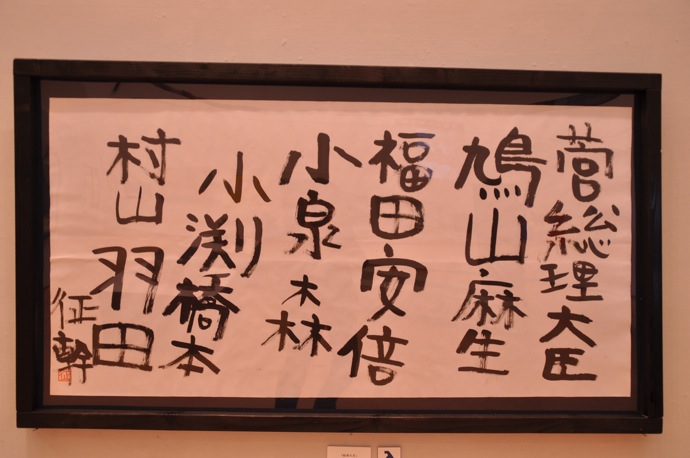 菅総理大臣
鳩山麻生
福田安倍
小泉森
小渕橋本
村山羽田
征幹